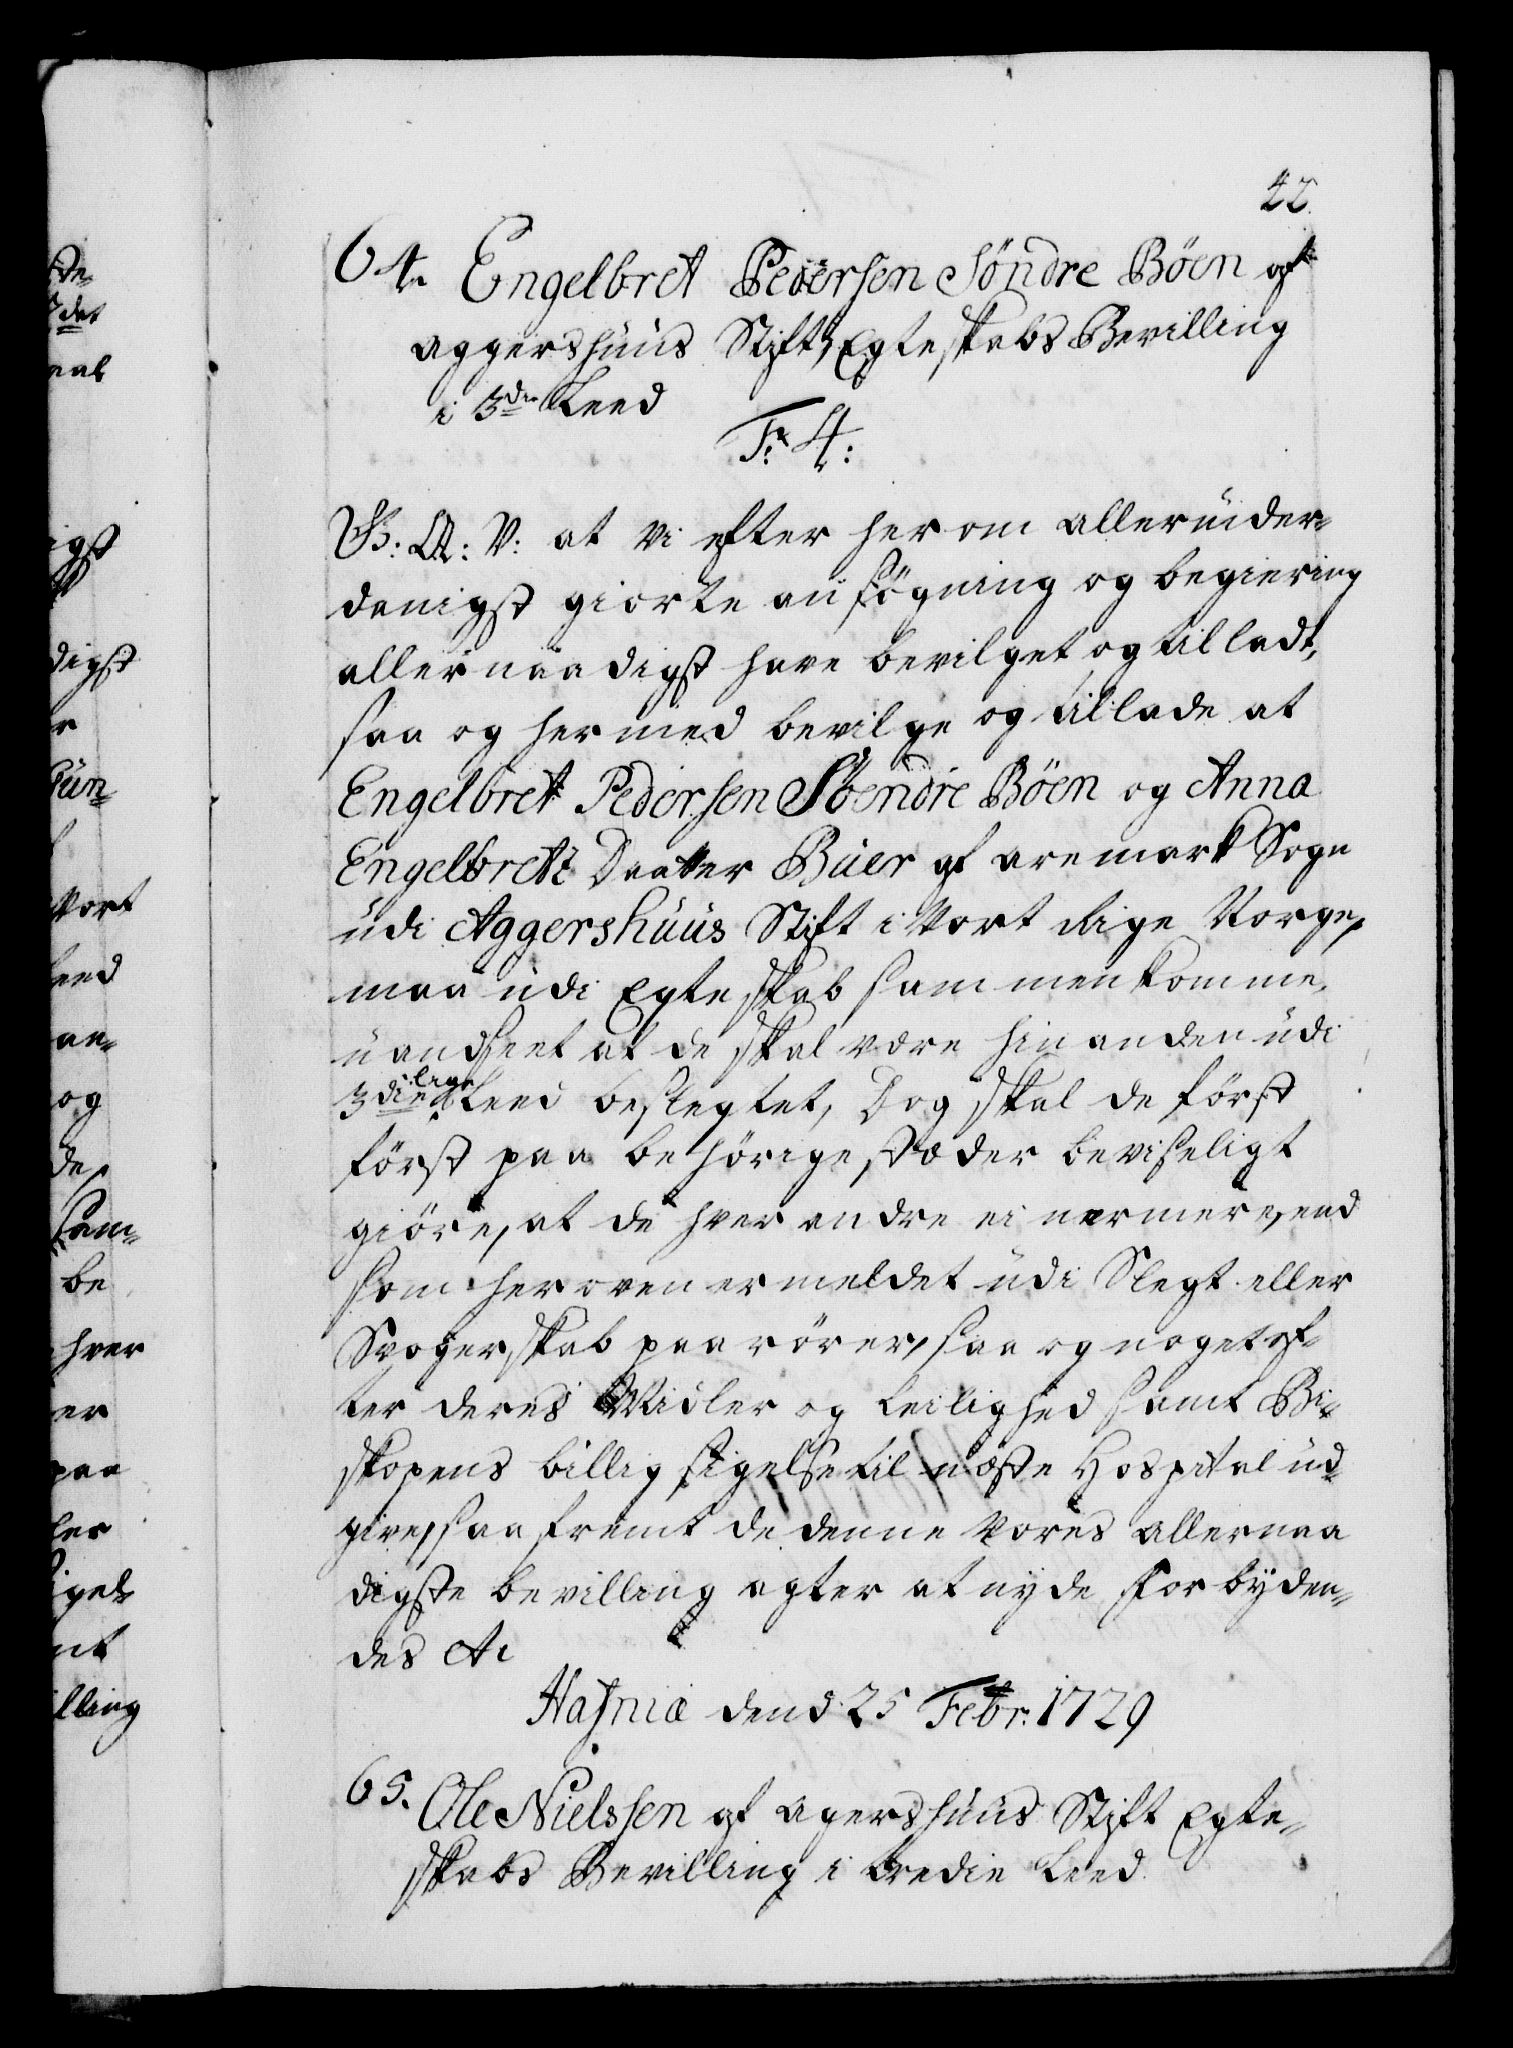 42.
64. Engelbret Pedersen Söndre Böen af
Aggershuus Stift, Egteskabs Bevilling
i 3die Leed
F. 4:
G: A: V: at vi efter herom allerunder-
danigst giorte ansögning og begiering
allernaadigst have bevilget og tilladt,
saa og hermed bevilge og tillade at
Engelbret Pedersen Söendre Böen og Anna
Engelbrets Daatter Buer af Aremark Sogn
udi Aggershuus Stift i Vort Rige Norge,
maa udi Egteskab sammenkomme,
uandseet at de skal være hinanden udi
3die lige Leed beslegtet, Dog skal de först
först paa behörige stæder beviseligt
giöre, at de hverandre ei nermere, end
som heroven ermeldet udi Slegt eller
Svogerskab paarörer, saa og noget ef-
ter deres Midler og Leilighed samt Bi-
skopens billig sigelse til næste Hospital ud-
give, saafremt de denne Vores allernaa
digste bevilling agter at nyde Forbyden-
des &c
Hafniæ dend 25 Febr. 1729
65. Ole Nielssen af Agershuus Stift Egte-
skabs Bevilling i tredie Leed
de-
3 det
igst
digst
r
Vort
Leed
an-
og
de,
sam-
be
hver
er
paa
ler
sigel-
nt
illing